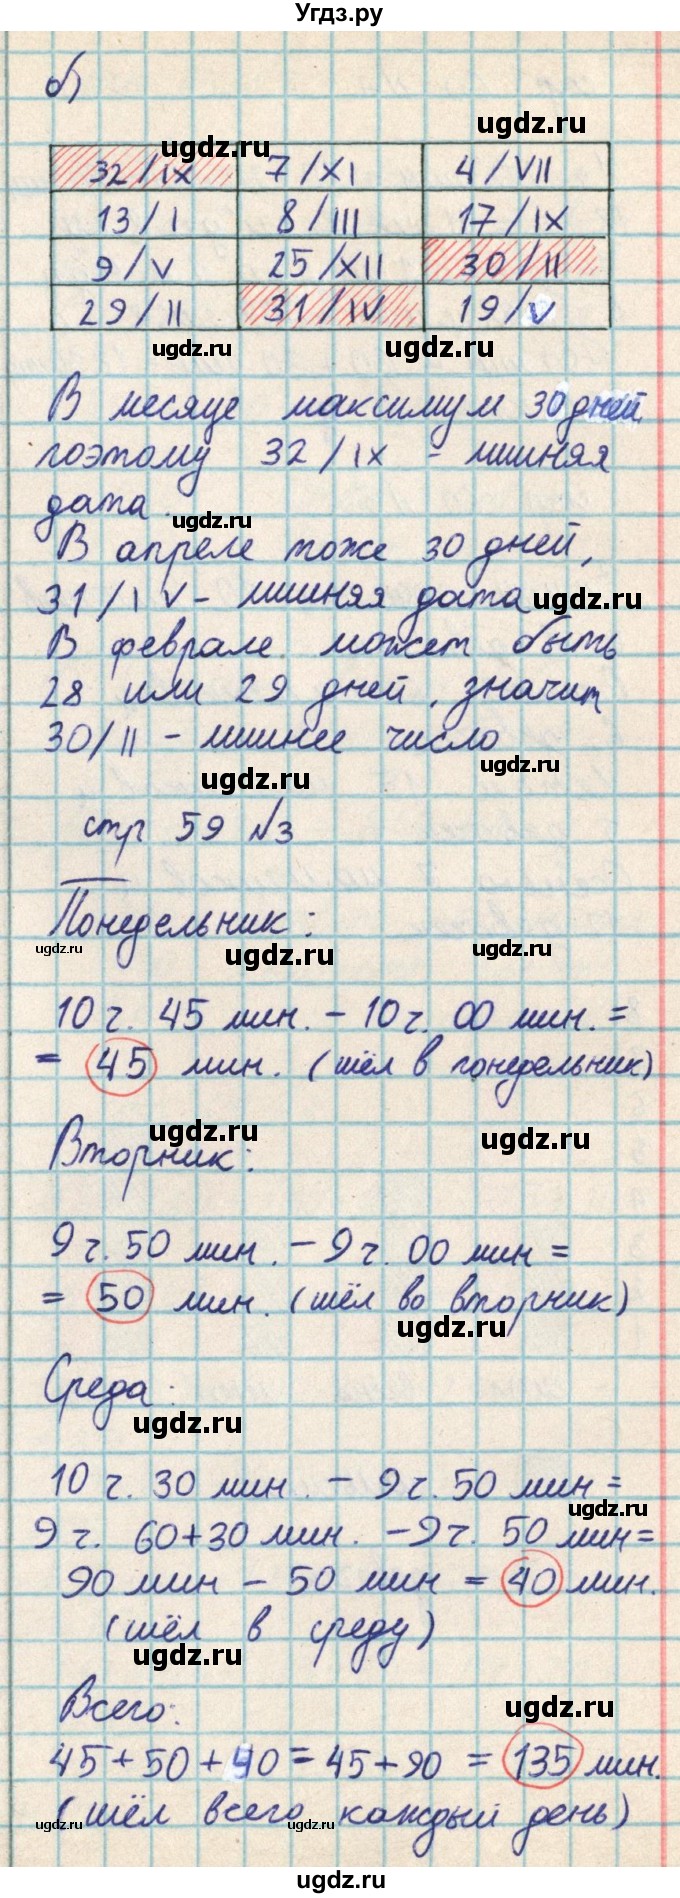 Угдз.ру
б)
ugdz.ru
ugdz.ru
32/IX 7/XI 4/VII
13/I 8/III 17/IX
9/V 25/XII 30/II
29/II 31/IV 19/V
ugdz.ru ugdz.ru
В месяце максимум 30 дней,
поэтому 32/IX - лишняя
дата.
ugdz.ru
В апреле тоже 30 дней,
31/IV - лишняя дата
ugdz.ru
В феврале может быть
28 или 29 дней, значит
30/II - лишнее число
ugdz.ru ugdz.ru
стр 59 №3
Понедельник:
ugdz.ru ugdz.ru ugdz.ru
10 ч. 45 мин. - 10 ч. 00 мин. =
= 45 мин. (шёл в понедельник)
ugdz.ru ugdz.ru
Вторник:
9 ч. 50 мин. - 9 ч. 00 мин =
= 50 мин. (шёл во вторник)
ugdz.ru
Среда:
ugdz.ru
10 ч. 30 мин. - 9 ч. 50 мин =
ugdz.ru
9 ч. 60+30 мин. - 9 ч. 50 мин =
90 мин - 50 мин = 40 мин.
(шёл в среду)
ugdz.ru
Всего:
ugdz.ru
45+50+40=45+90 = 135 мин.
(шёл всего каждый день)
ugdz.ru ugdz.ru ugdz.ru
ugdz.ru